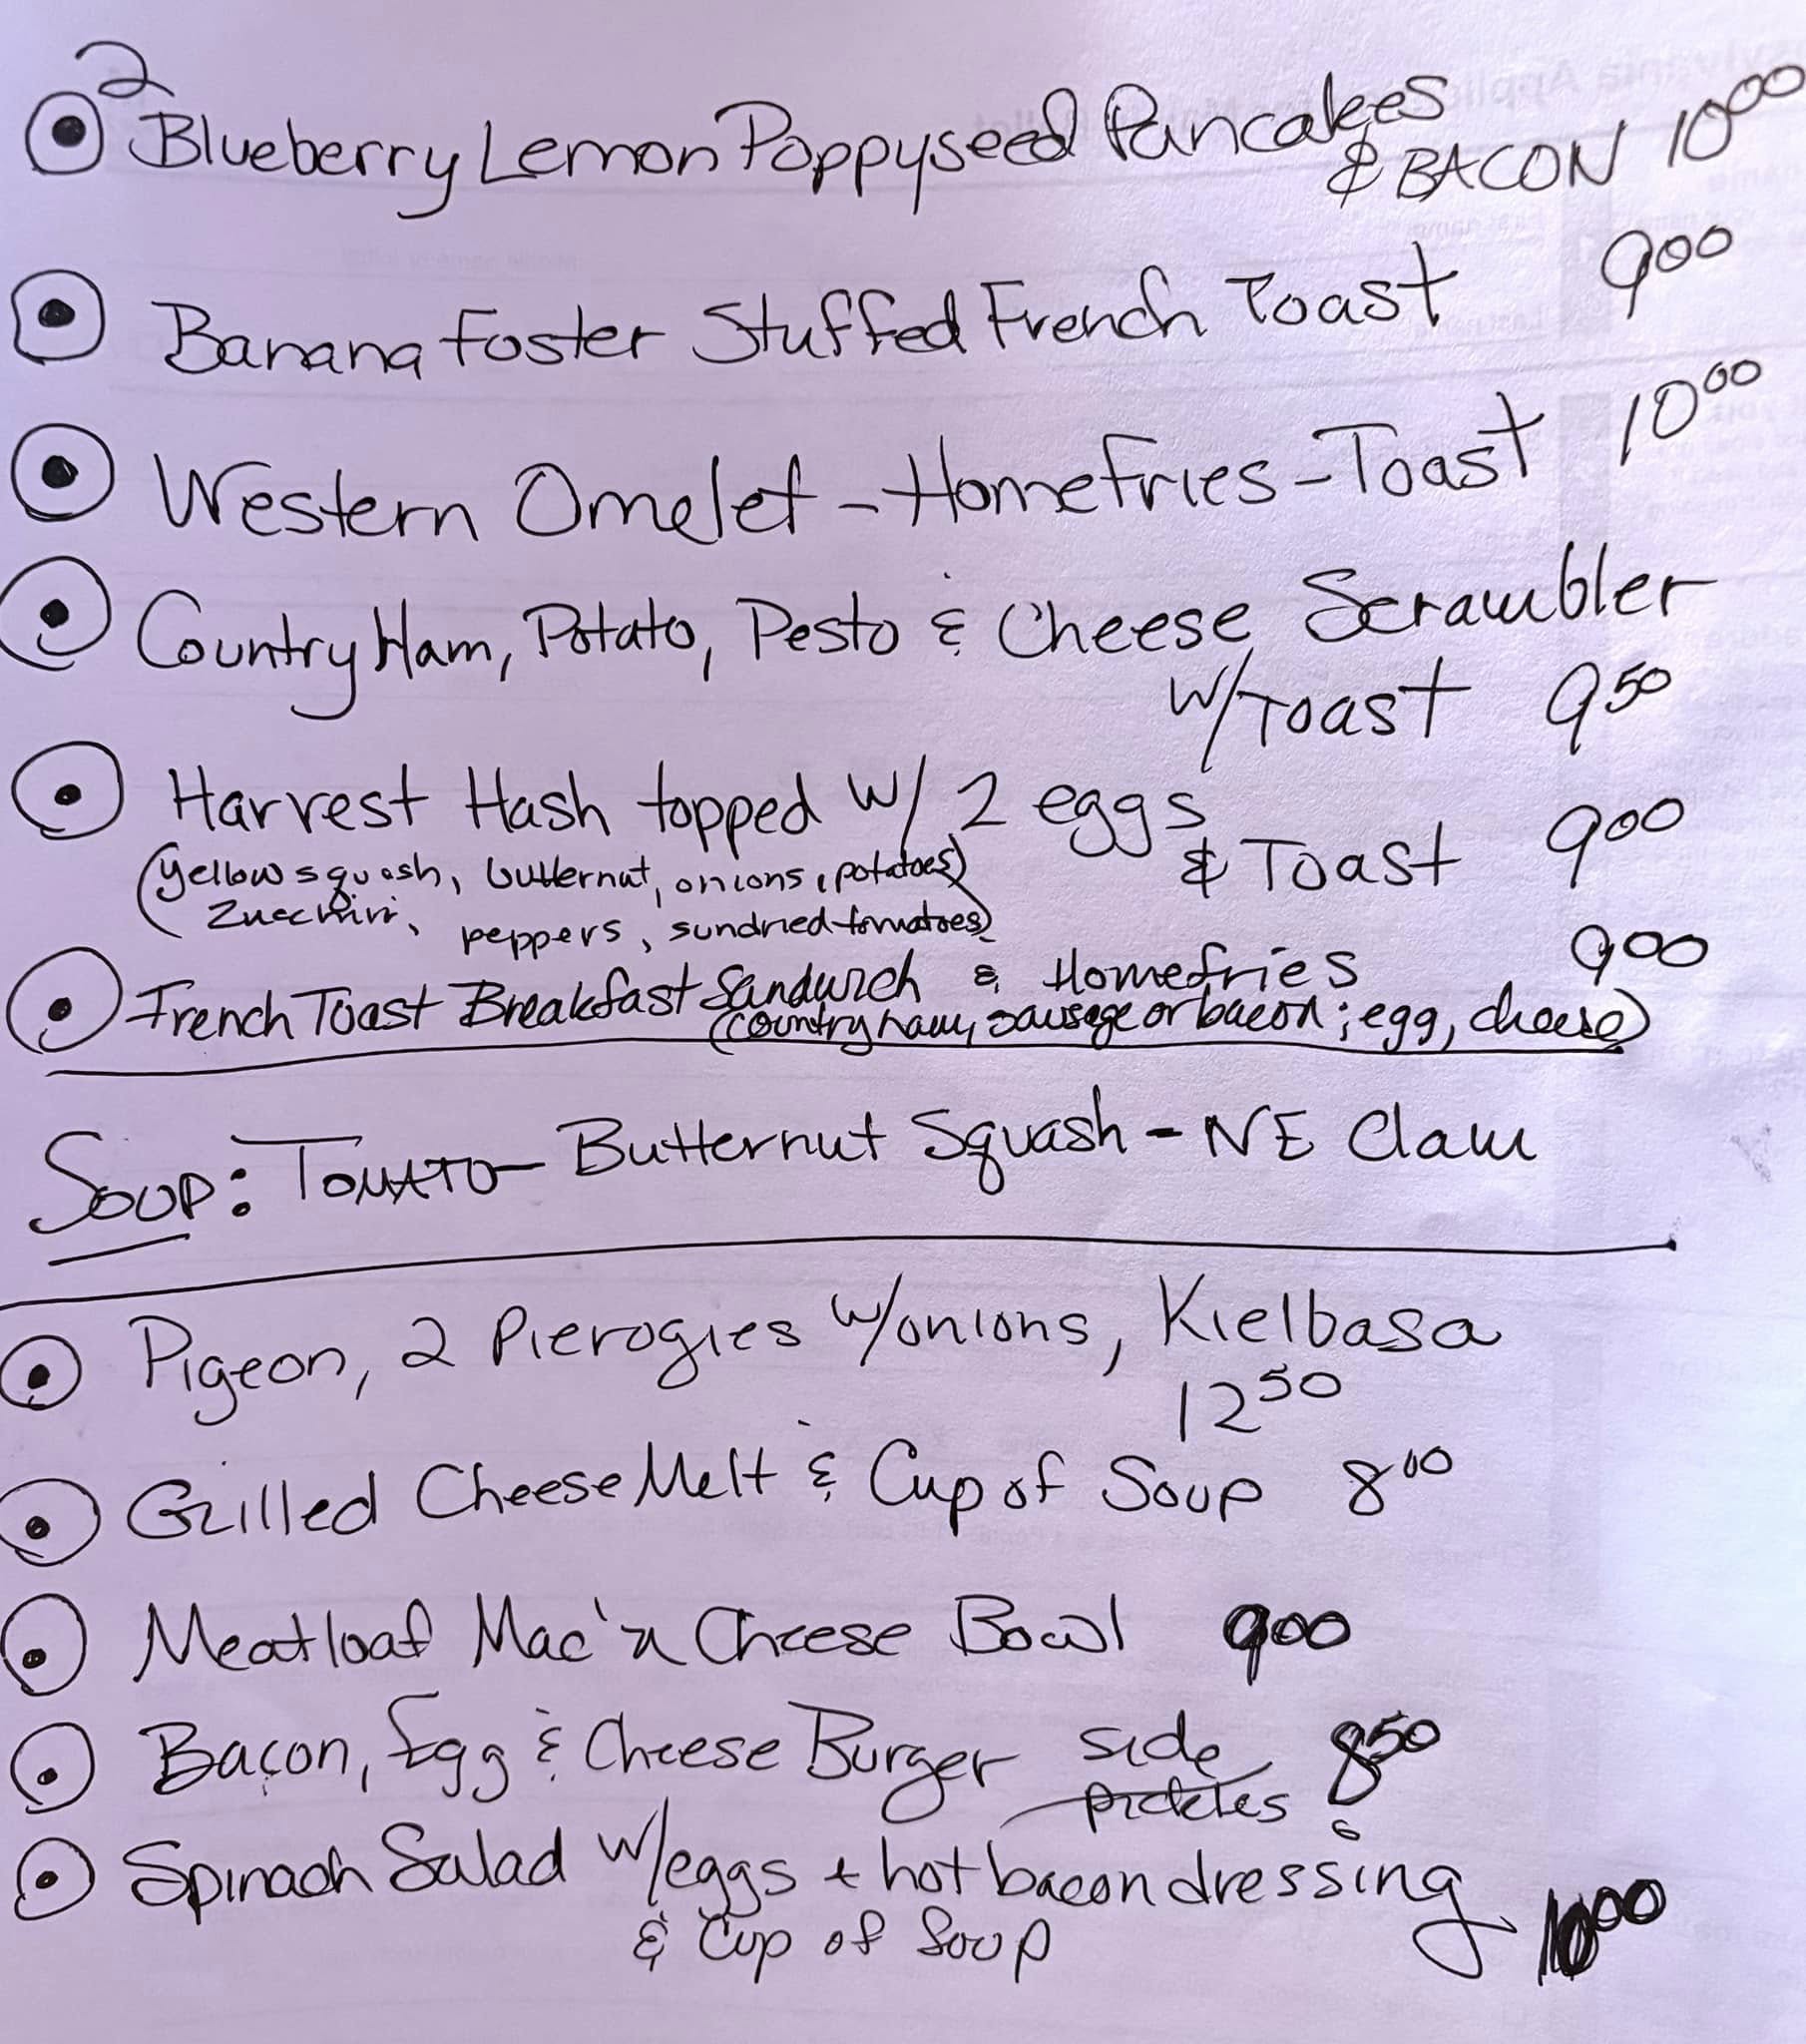 2
Blueberry Lemon Poppyseed Pancakes
& BACON 10⁰⁰
Banana Foster Stuffed French Toast 9⁰⁰
Western Omelet - Homefries - Toast 10⁰⁰
Country Ham, Potato, Pesto & Cheese Scrambler
w/Toast 9⁵⁰
Harvest Hash topped w/ 2 eggs
& Toast 9⁰⁰
(yellow squash, butternut, onions, potatoes)
zucchini, peppers, sundried tomatoes)
French Toast Breakfast Sandwich & Homefries 9⁰⁰
(country ham, sausage or bacon; egg, cheese)
Soup: Tomato - Butternut Squash - NE Clam
Pigeon, 2 Pierogies w/onions, Kielbasa
12⁵⁰
Grilled Cheese Melt & Cup of Soup 8⁰⁰
Meatloaf Mac'n Cheese Bowl 9⁰⁰
Bacon, Egg & Cheese Burger side 8⁵⁰
pickles
Spinach Salad w/eggs + hot bacon dressing
& Cup of Soup 10⁰⁰